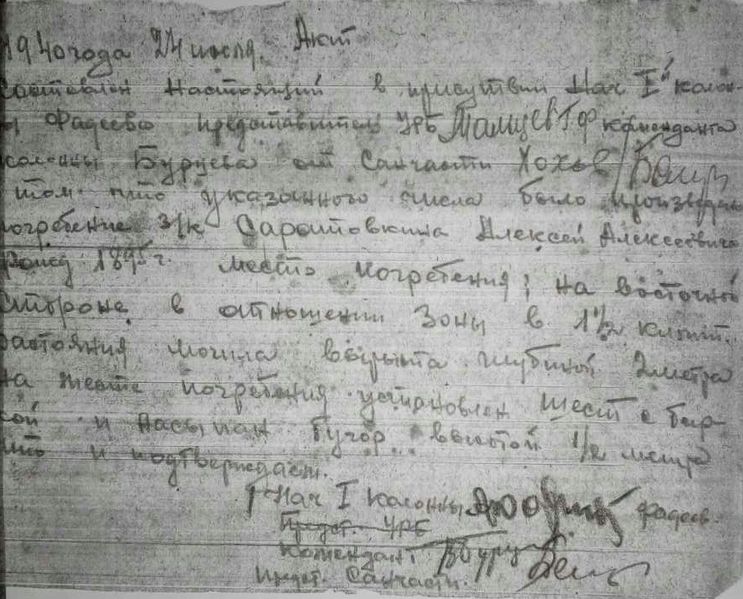 1940 года 24 июля. Акт
составлен настоящий в присутствии Нач I й колон-
ы Фадеева представитель УРБ коменданта
колонны Буруева от Санчасти Хохов
том что указанного числа было произведено
погребение з/к Алексей Алексеевича
рожд 1895 г. место погребения; на восточной
стороне в отношении Зоны в 1½ килом.
растояния могила вырыта глубиной 2 метра
на месте погребения установлен шест с бир-
кой и насыпан бугор высотой 1/2 метра
что и подтверждаем.
Нач I колонны Фадеев.
Предст. УРБ
Комендант
Предст. Санчасти.